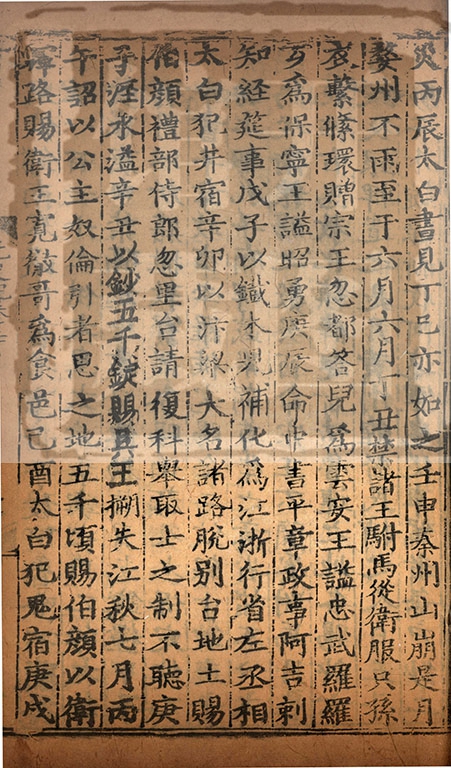 災丙辰太白晝見丁巳亦如之壬申秦州山崩是月
婺州不雨至于六月六月丁丑禁諸王駙馬從衛服只孫
衣繫絛環贈宗王忽都答兒爲雲安王謚忠武羅羅
歹爲保寧王謚昭勇庚辰命中書平章政事阿吉剌
知經筵事戊子以鐵木兒補化爲江浙行省左丞相
太白犯井宿辛卯以汴梁大名諸路脫别台地土賜
伯顔禮部侍郎忽里台請復科舉取士之制不聽庚
子涇水溢辛丑以鈔五千錠賜吳王搠失江秋七月丙
午詔以公主奴倫引者思之地五千頃賜伯顔以衛
輝路賜衛王寛徹哥爲食邑己酉太白犯鬼宿庚戌